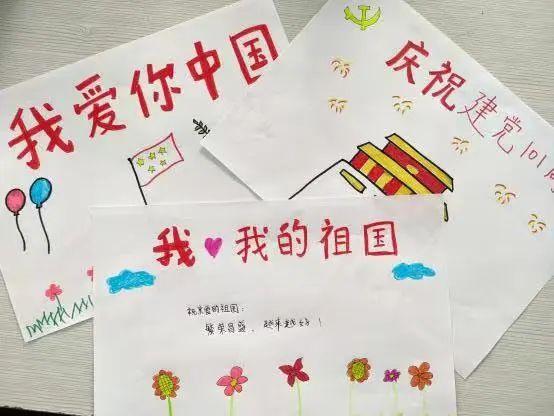 我爱你中国
庆祝建党101周
我 我的祖国
祝亲爱的祖国：
繁荣昌盛，越来越好！